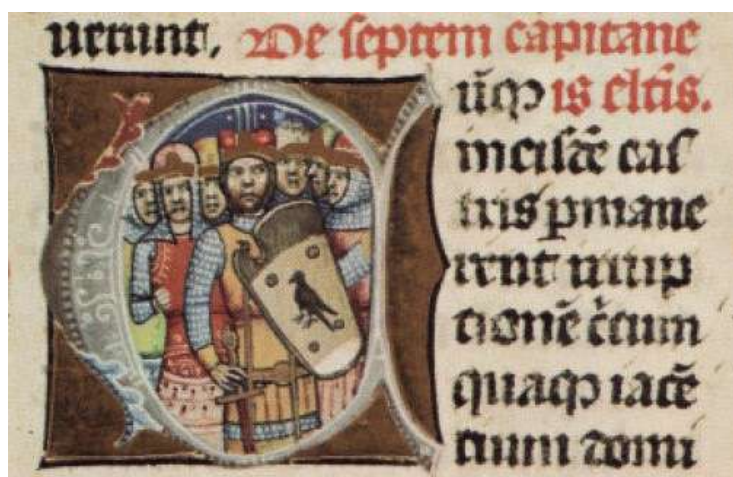 uerunt. De septem capitane
ūq; is eltīs.
cas
tris ꝑmane
rent irrup
tionē c̄cum
quaq; iacē
tium domi